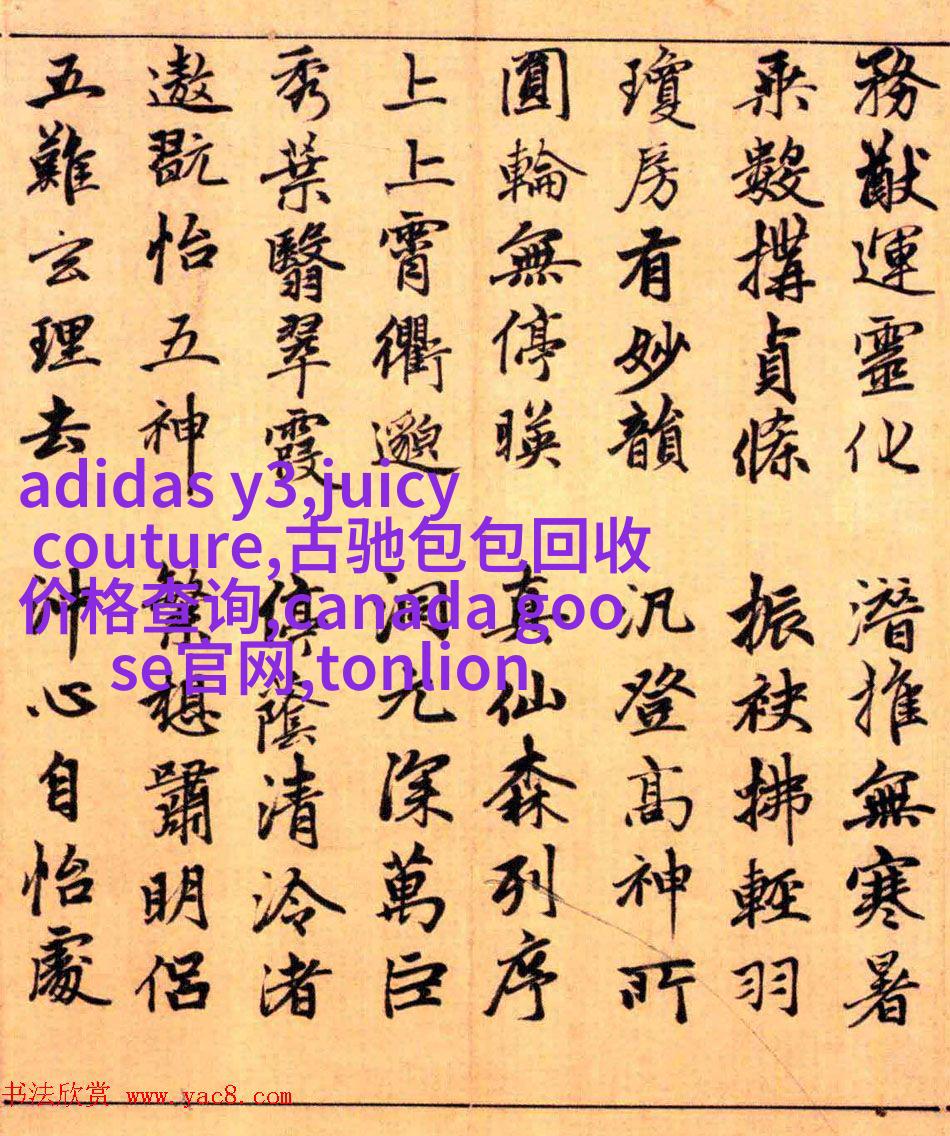 務猷運靈化 潛推無寒暑
乘數搆貞條 振袂拂輕羽
瓊房有妙韻 汎登高神所
圓輪無停暎 真仙森列序
上上霄衢邈 洞元深萬巨
秀葉翳翠霞 停蔭清泠渚
遨翫怡五神 繁想嘯明侶
五難玄理去 沖心自怡處
adidas y3,juicy
couture,古驰包包回收
价格查询,canada goo
se官网,tonlion
书法欣赏 www.yac8.com